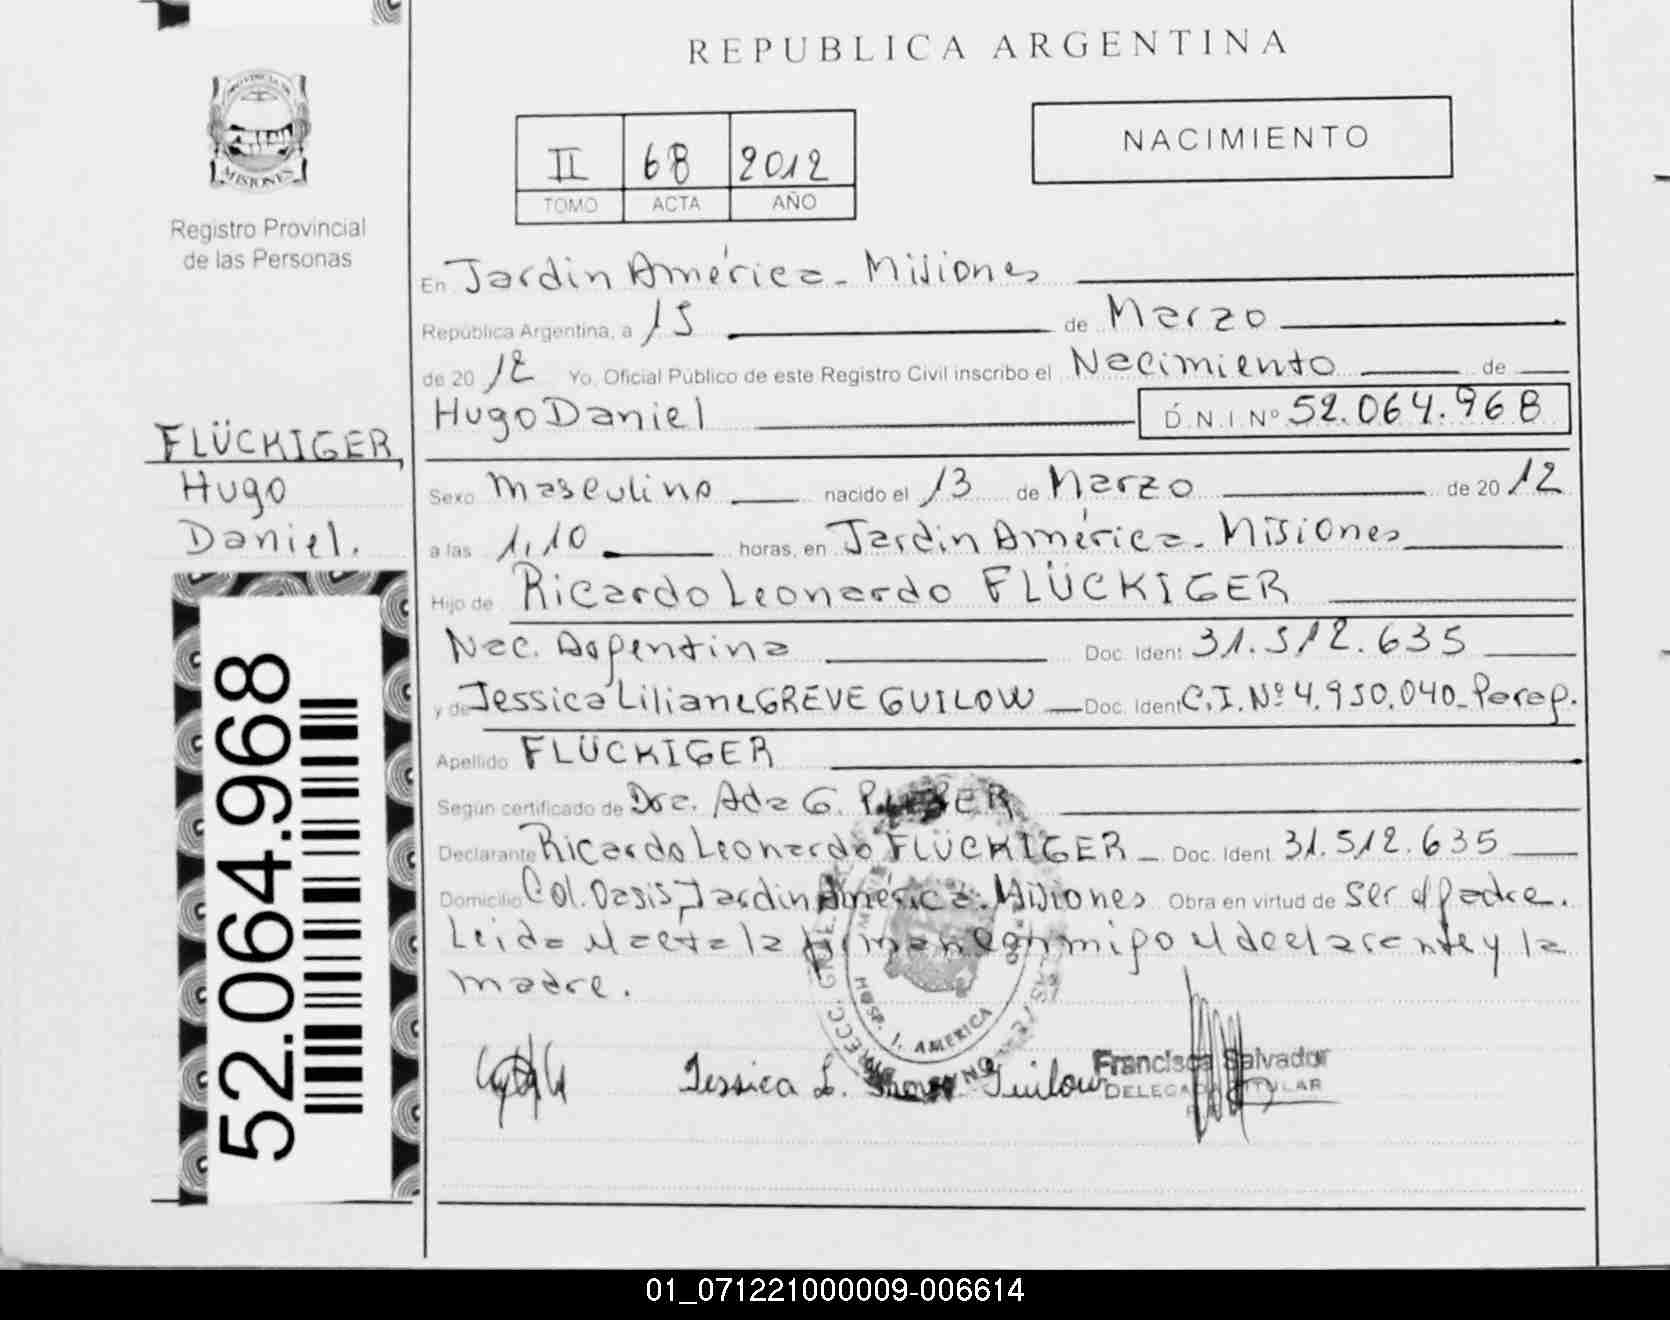 REPUBLICA ARGENTINA
PROVINCIA DE
MISIONES
Registro Provincial
de las Personas
II 68 2012
TOMO ACTA AÑO
NACIMIENTO
En Jardin América - Misiones
República Argentina, a 15 de Marzo
de 2012 Yo, Oficial Público de este Registro Civil inscribo el Nacimiento de
Hugo Daniel D.N.I. Nº 52.064.968
FLÜCKIGER,
Hugo
Daniel.
Sexo Masculino nacido el 13 de Marzo de 2012
a las 1,10 horas, en Jardin América - Misiones
Hijo de Ricardo Leonardo FLÜCKIGER
Nac. Argentina Doc. Ident. 31.512.635
y de Jessica Liliane GREVE GUILOW Doc. Ident C.I. Nº 4.950.040 - Parag.
Apellido FLÜCKIGER
Según certificado de Dra. Ada G.
Declarante Ricardo Leonardo FLÜCKIGER - Doc. Ident. 31.512.635
Domicilio Col. Oasis, Jardin América - Misiones Obra en virtud de ser el padre.
Leida el acta la firman conmigo el declarante y la
madre.
HOSP. J. AMERICA
Jessica L. Guilow
Francisca Salvador
DELEGADA TITULAR
52.064.968
01_071221000009-006614